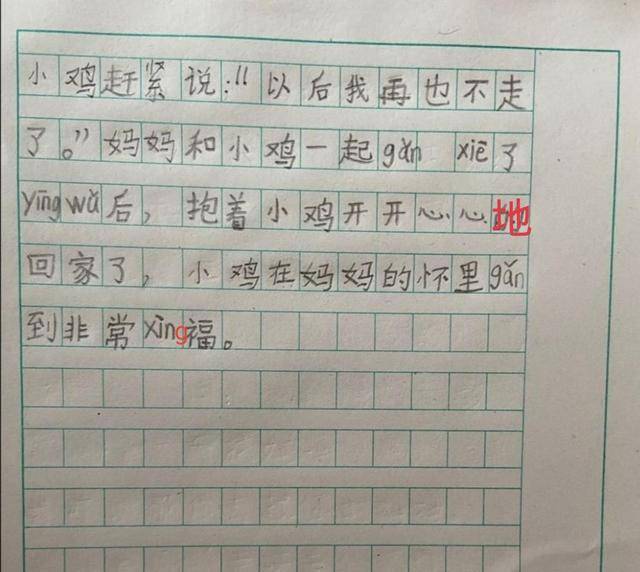 小鸡赶紧说：“以后我再也不走
了。”妈妈和小鸡一起gǎn xiē了
yīngwǔ后，抱着小鸡开开心心地
回家了，小鸡在妈妈的怀里gǎn
到非常xìng福。